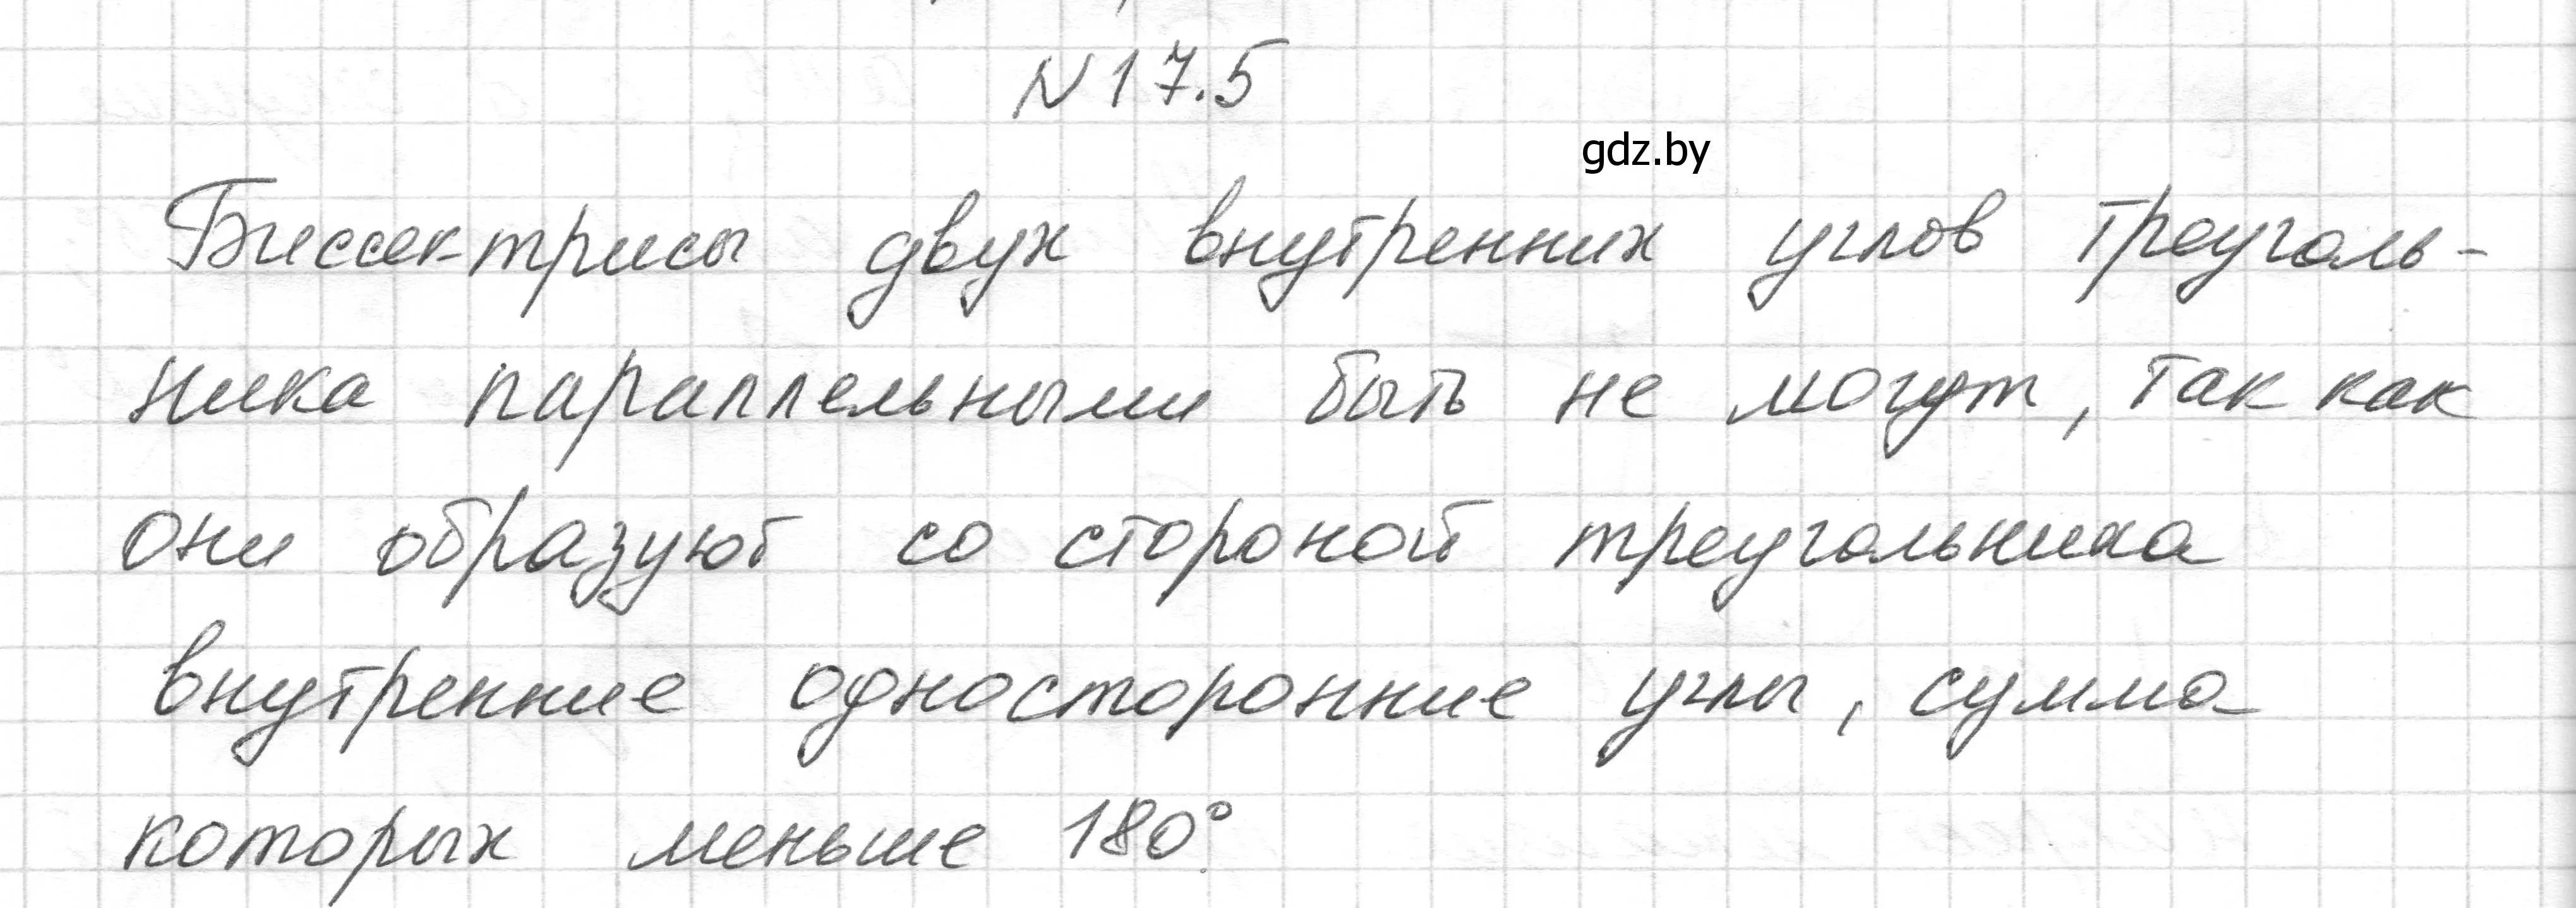 N17.5
gdz.by
Биссектрисы двух внутренних углов треуголь-
ника параллельными быть не могут, так как
они образуют со стороной треугольника
внутренние односторонние углы, сумма
которых меньше 180°.